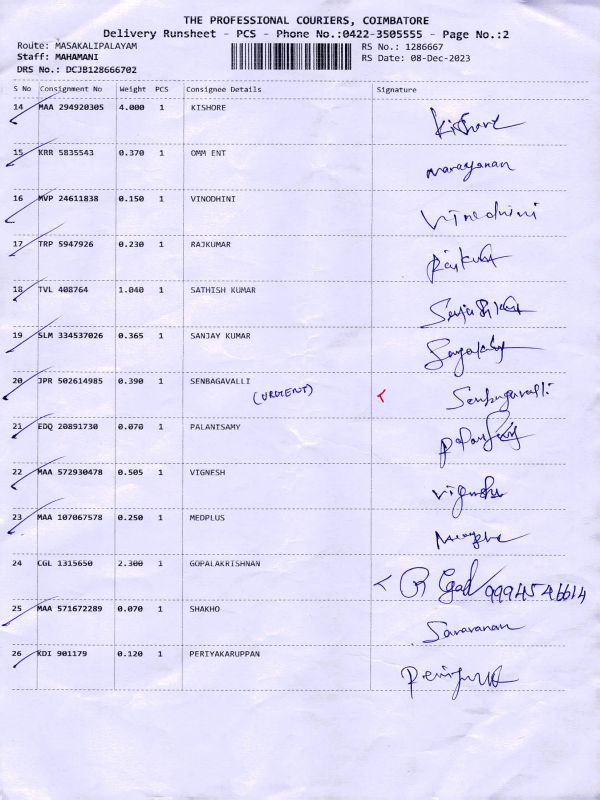 THE PROFESSIONAL COURIERS, COIMBATORE
Delivery Runsheet - PCS - Phone No.:0422-3505555 - Page No.:2
Route: MASAKALIPALAYAM RS No.: 1286667
Staff: MAHAMANI RS Date: 08-Dec-2023
DRS No.: DCJB128666702
S No Consignment No Weight PCS Consignee Details Signature
14 MAA 294920305 4.000 1 KISHORE Kishore
15 KRR 5835543 0.370 1 OMM ENT Narayanan
16 MVP 24611838 0.150 1 VINODHINI Vinodhini
17 TRP 5947926 0.230 1 RAJKUMAR
18 TVL 408764 1.040 1 SATHISH KUMAR
19 SLM 334537026 0.365 1 SANJAY KUMAR
20 JPR 502614985 0.390 1 SENBAGAVALLI Senbagavalli
(URGENT)
21 EDQ 20891730 0.070 1 PALANISAMY
22 MAA 572930478 0.505 1 VIGNESH
23 MAA 107067578 0.250 1 MEDPLUS
24 CGL 1315650 2.300 1 GOPALAKRISHNAN 9994546614
25 MAA 571672289 0.070 1 SHAKHO Saravanan
26 KDI 901179 0.120 1 PERIYAKARUPPAN